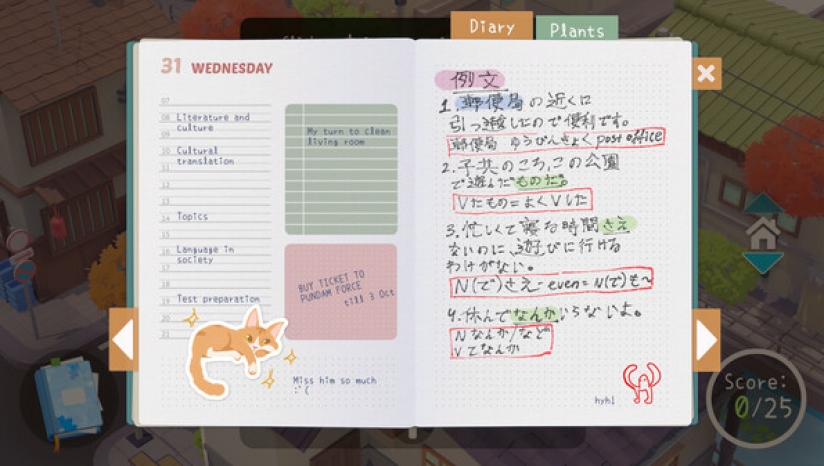 Diary
Plants
31 WEDNESDAY
07
08 Literature and
culture
10 Cultural
translation
11
12
13
14 Topics
15
16 Language in
society
19 Test preparation
20
21
My turn to clean
living room
BUY TICKET TO
PUNDAM FORCE
till 3 Oct
Miss him so much
:'(
例文
1.郵便局の近くに
引っ越したので便利です。
郵便局 ゆうびんきょく post office
2.子共のころ、この公園
で遊んだものだ。
Vたもの=よくVした
3.忙しくて寝る時間さえ
ないのに、遊びに行ける
わけがない。
N(で)さえ-even=N(で)も~
4.休んでなんかいらないよ。
Nなんか/など
Vてなんか
hyh!
Score:
0/25